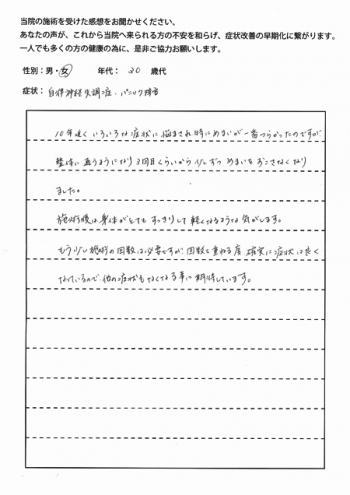 当院の施術を受けた感想をお聞かせください、
あなたの声が、これから当院へ来られる方の不安を和らげ、症状改善の早期化に繋がります。
一人でも多くの方の健康の為に、是非ご協力お願いします。
性別：男・女 年代： 30 歳代
症状： 自律神経失調症、パニック障害
10年近くいろいろな症状に悩まされ特にめまいが一番つらかったのですが
整体に通うようになり3回目くらいから少しずつめまいをおこさなくなり
ました。
施術後は身体がとてもすっきりして軽くなるような気がします。
もう少し施術の回数は必要ですが回数を重ねる度確実に症状は良く
なっているので他の症状もなくなる事に期待しています。